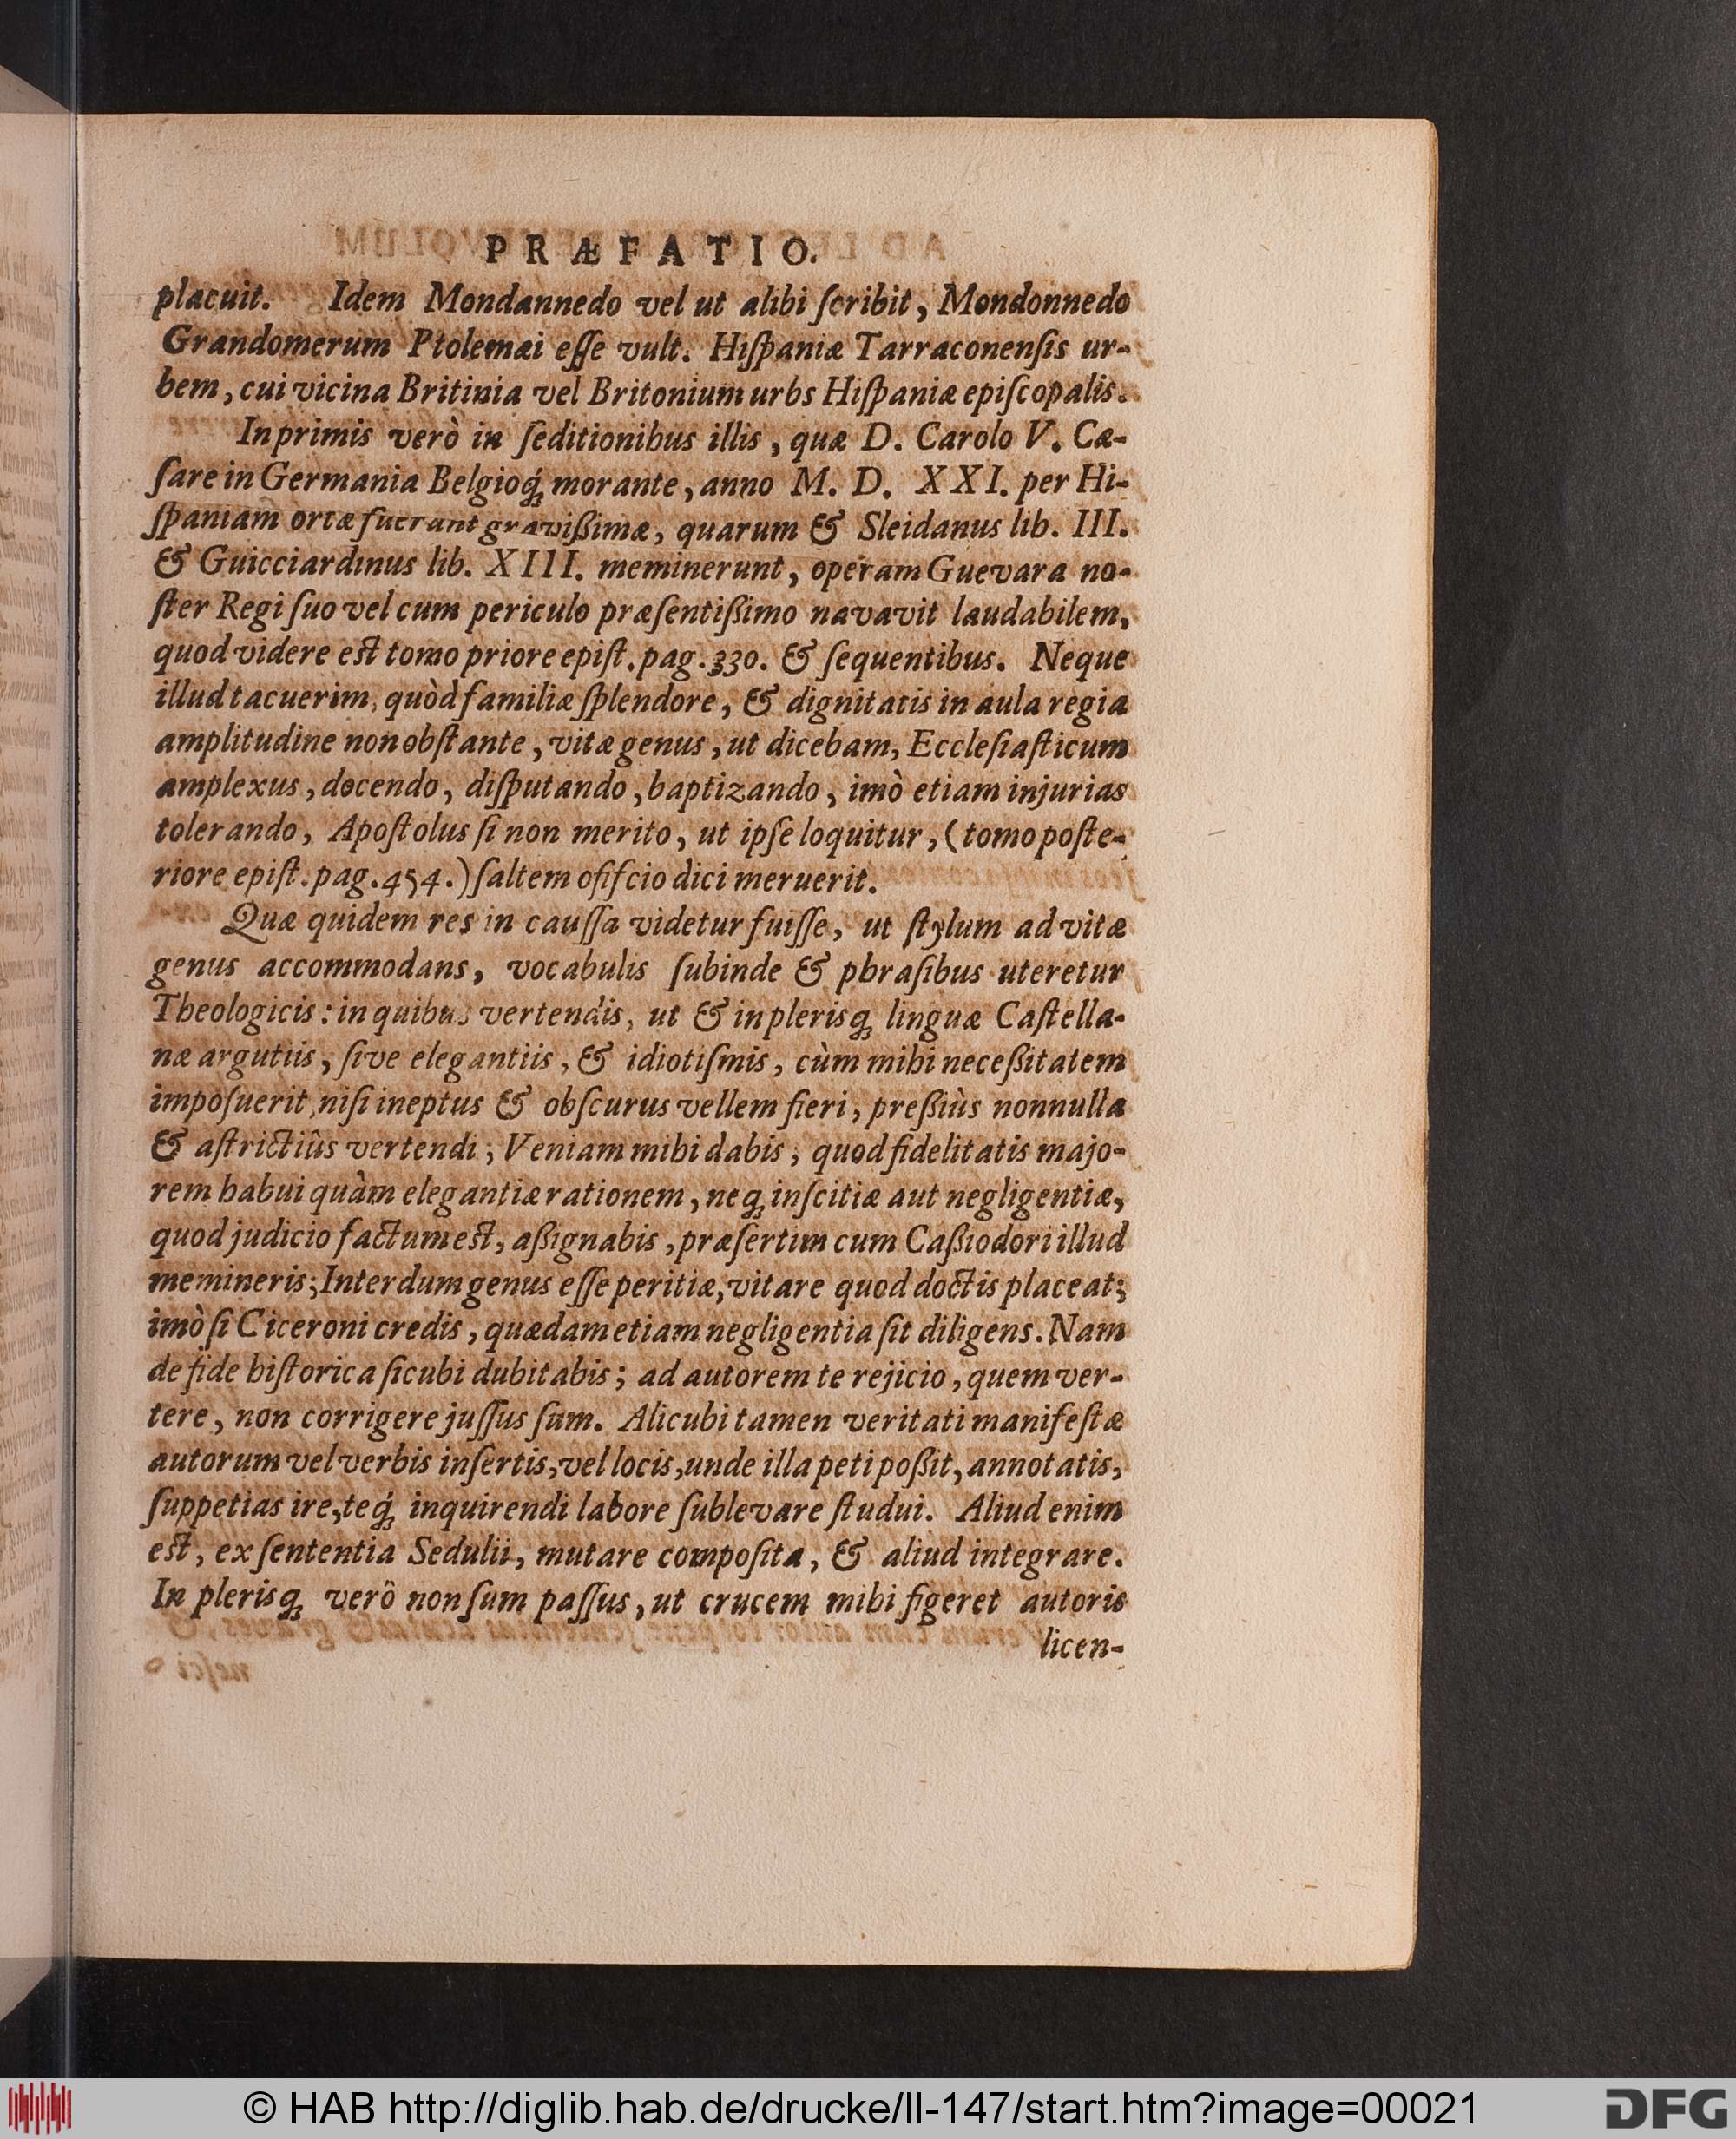 PRÆFATIO.
placuit. Idem Mondannedo vel ut alibi ſcribit, Mondonnedo
Grandomerum Ptolemæi eſſe vult. Hiſpaniæ Tarraconenſis ur-
bem, cui vicina Britinia vel Britonium urbs Hiſpaniæ epiſcopalis.
Inprimis verò in ſeditionibus illis, quæ D. Carolo V. Cæ-
ſare in Germania Belgioq́; morante, anno M. D. XXI. per Hi-
ſpaniam ortæ fuerant gravißimæ, quarum & Sleidanus lib. III.
& Guicciardinus lib. XIII. meminerunt, operam Guevara no-
ſter Regi ſuo vel cum periculo præſentißimo navavit laudabilem,
quod videre est tomo priore epiſt. pag. 330. & ſequentibus. Neque
illud tacuerim, quòd familiæ ſplendore, & dignitatis in aula regia
amplitudine non obſtante, vitæ genus, ut dicebam, Eccleſiaſticum
amplexus, docendo, diſputando, baptizando, imò etiam injurias
tolerando, Apoſtolus ſi non merito, ut ipſe loquitur, (tomo poſte-
riore epiſt. pag. 454.) ſaltem ofifcio dici meruerit.
Quæ quidem res in cauſſa videtur fuiſſe, ut ſtylum ad vitæ
genus accommodans, vocabulis ſubinde & phraſibus uteretur
Theologicis: in quibus vertendis, ut & in plerisq; linguæ Caſtella-
næ argutiis, ſive elegantiis, & idiotiſmis, cùm mihi neceßitatem
impoſuerit, niſi ineptus & obſcurus vellem fieri, preßiùs nonnulla
& aſtrictiùs vertendi; Veniam mihi dabis, quod fidelitatis majo-
rem habui quàm elegantiæ rationem, neq; inſcitiæ aut negligentiæ,
quod judicio factum est, aßignabis, præſertim cum Caßiodori illud
memineris; Interdum genus eſſe peritiæ, vitare quod doctis placeat;
imò ſi Ciceroni credis, quædam etiam negligentia ſit diligens. Nam
de fide hiſtorica ſicubi dubitabis; ad autorem te rejicio, quem ver-
tere, non corrigere juſſus ſum. Alicubi tamen veritati manifeſtæ
autorum vel verbis inſertis, vel locis, unde illa peti poßit, annotatis,
ſuppetias ire, teq́; inquirendi labore ſublevare ſtudui. Aliud enim
est, ex ſententia Sedulii, mutare compoſita, & aliud integrare.
In plerisq; verò non ſum paſſus, ut crucem mihi figeret autoris
licen-
© HAB http://diglib.hab.de/drucke/ll-147/start.htm?image=00021
DFG